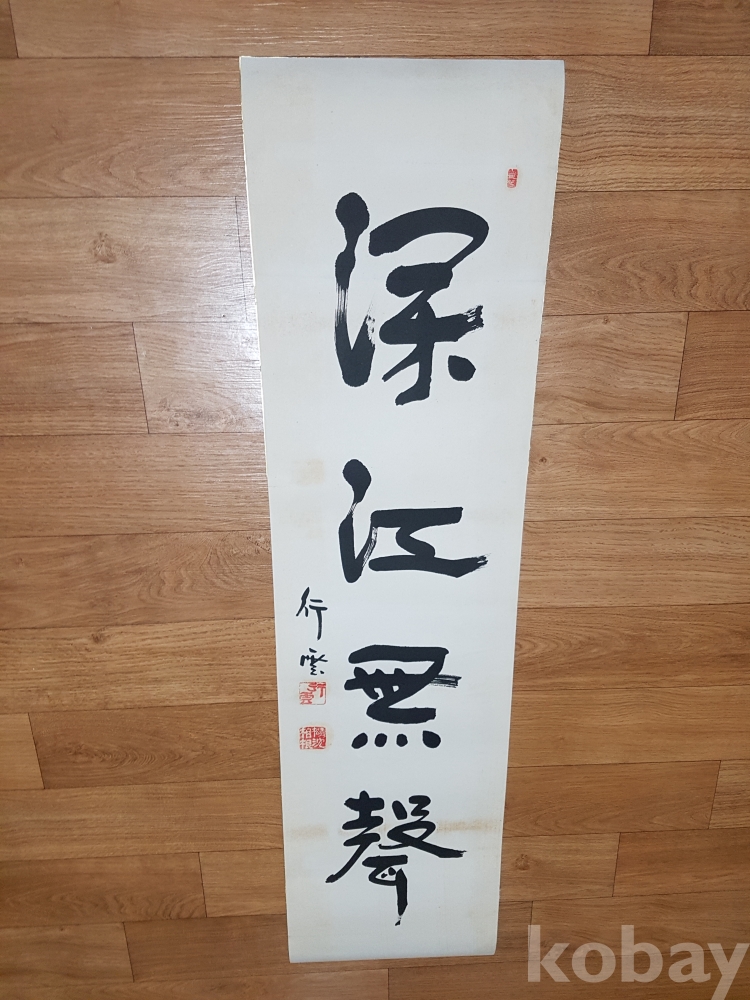 深江無聲
行雲
kobay